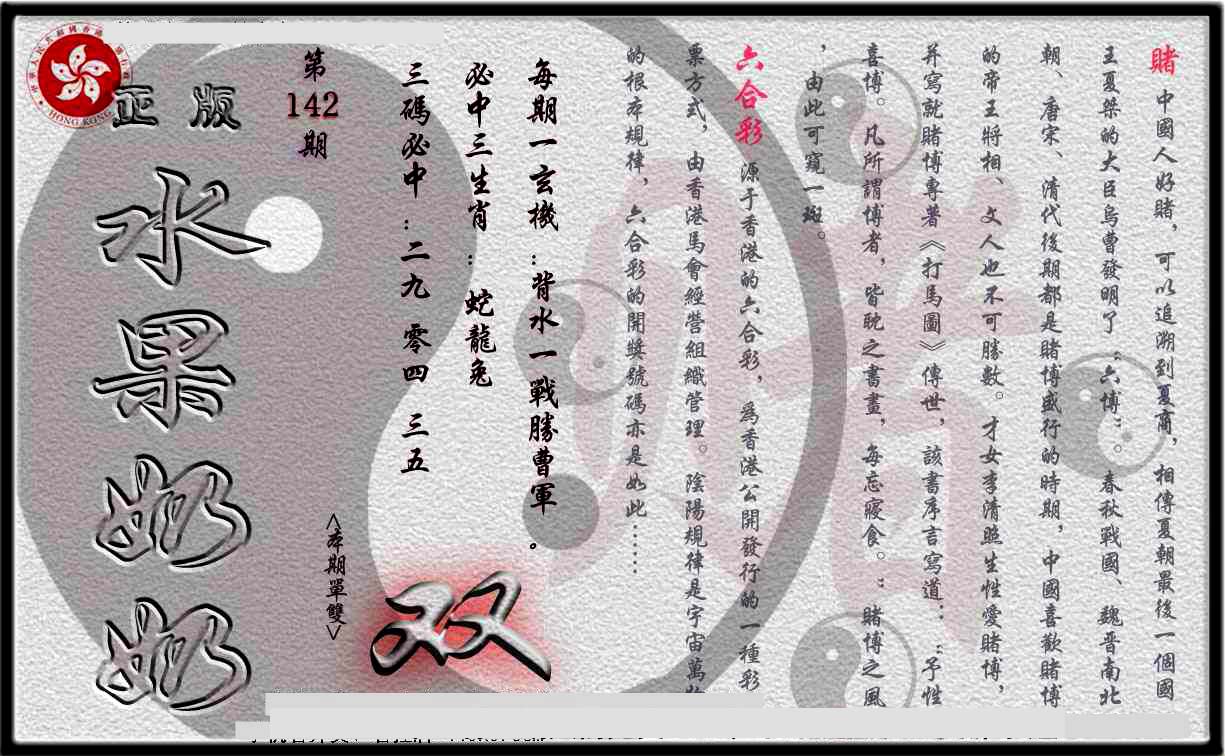 賭 中國人好賭，可以追溯到夏商，相傳夏朝最後一個國
王夏桀的大臣烏曹發明了“六博”。春秋戰國、魏晉南北
朝、唐宋、清代後期都是賭博盛行的時期，中國喜歡賭博
的帝王將相、文人也不可勝數。才女李清照生性愛賭博，
并寫就賭博專著《打馬圖》傳世，該書序言寫道：“予性
喜博。凡所謂博者，皆耽之書畫，每忘寢食。”賭博之風
，由此可窺一斑。
六合彩 源于香港的六合彩，爲香港公開發行的一種彩
票方式，由香港馬會經營組織管理。陰陽規律是宇宙萬
的根本規律，六合彩的開獎號碼亦是如此……
每期一玄機：背水一戰勝曹軍。
必中三生肖：蛇龍兔
三碼必中：二九 零四 三五
第142期
<本期單雙>
双
正版
水果奶奶
HONG KONG